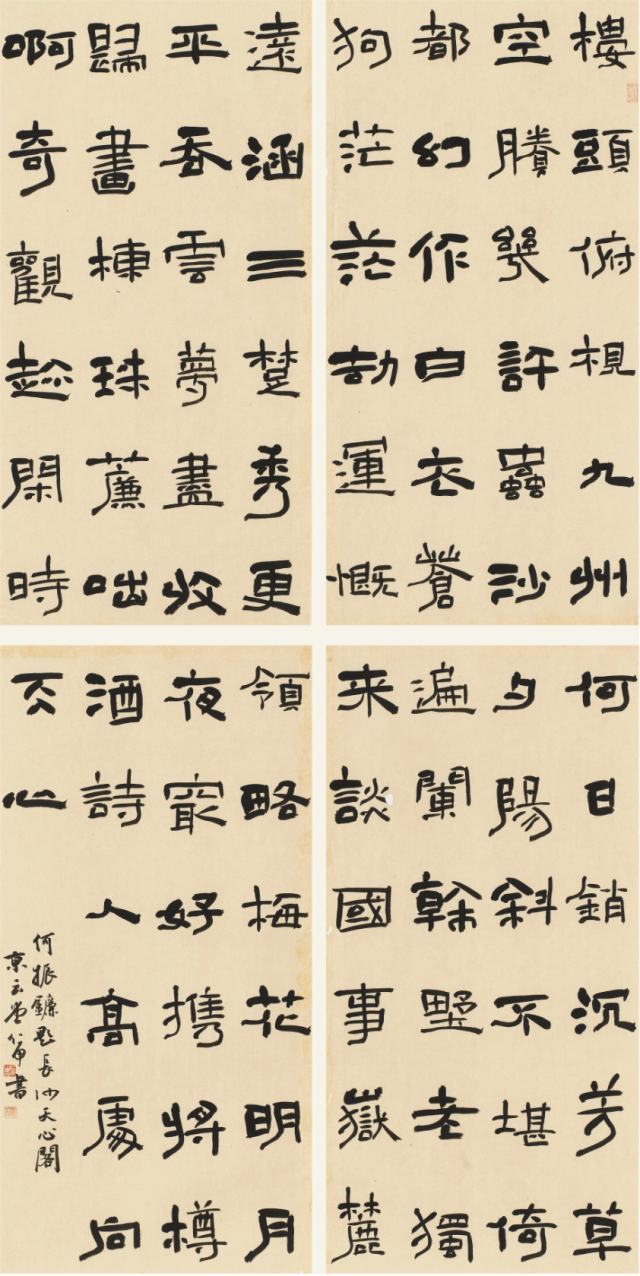 樓頭俯視九州
空騰幾許蟲沙
都幻作白衣蒼
狗茫茫劫運慨
何日銷沉芳草
夕陽斜不堪倚
遍闌幹野老獨
来談國事嶽麓
遠涵三楚秀更
平吞雲夢盡收
歸畫棟珠簾咄
啊奇觀趂閑時
領略梅花明月
夜冣好携將樽
酒詩人高處向
天心
何振題長沙天心閣
書